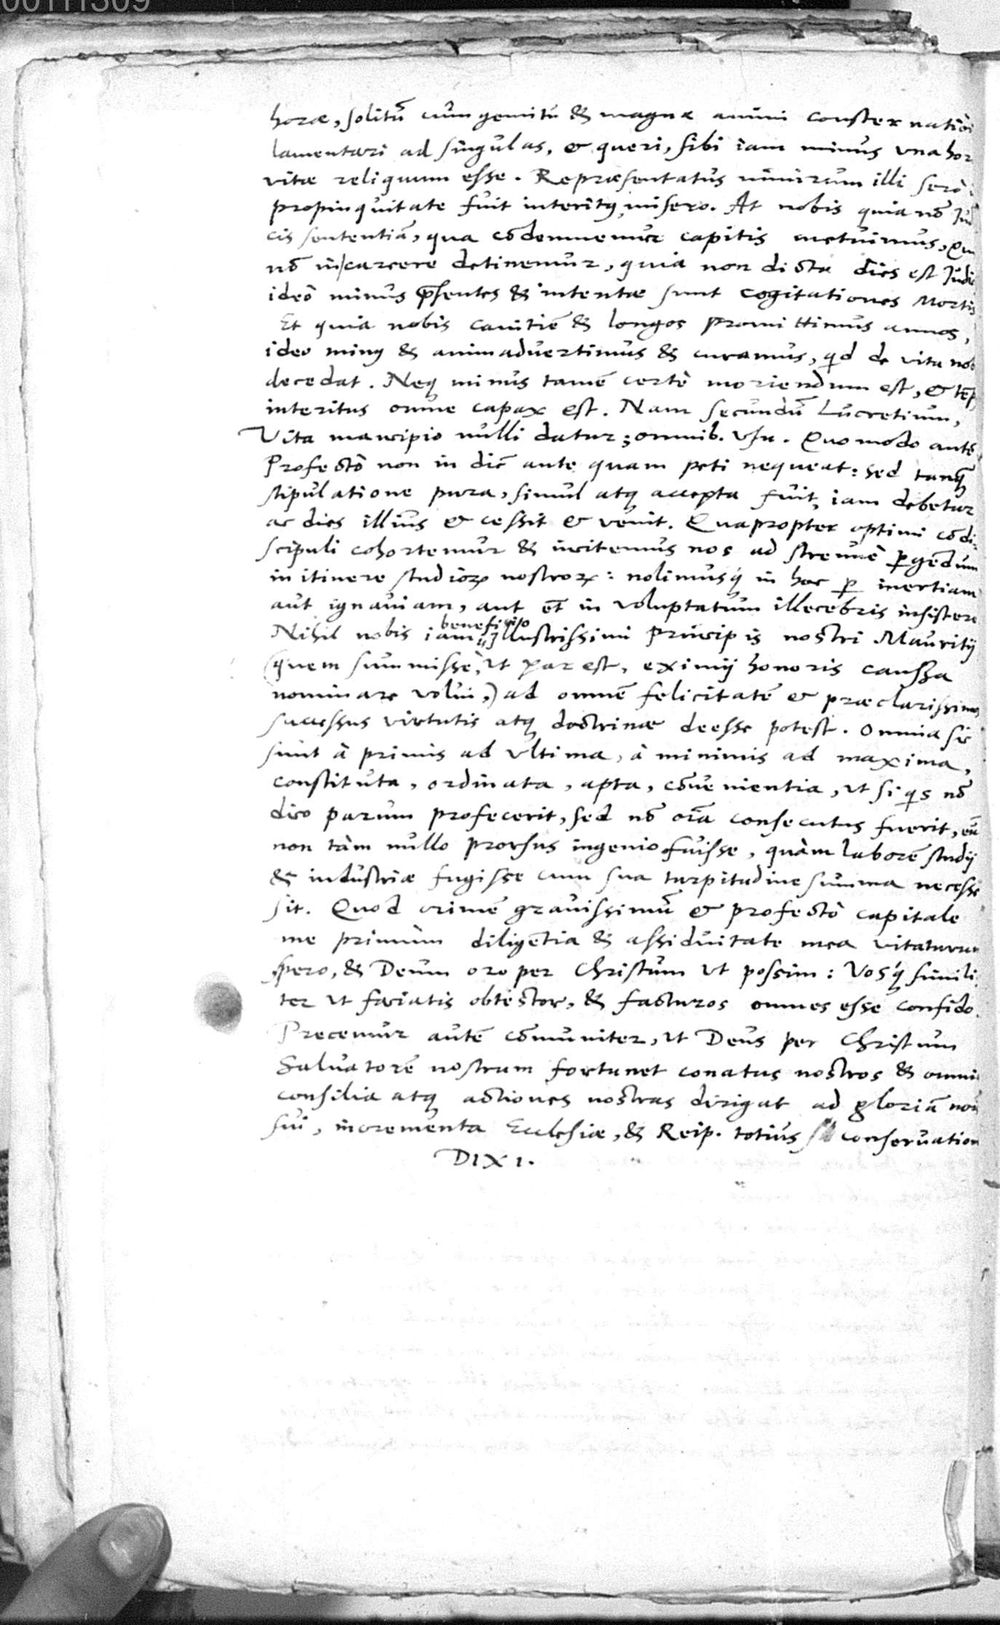 00111309
horæ, solitū cum gemitu & magna animi consternatiōe
lamentari ad singulas, & queri, sibi iam minus vna hor
vitæ reliquum esse. Repræsentatus nimirum illi serō
propinquitate fuit interitꝰ misero. At nobis quia nō Jud
cis sententiā, qua cōdemnemur capitis metuimus, Qu
nō in carcere detinemur, quia non dicta dies est Judi
ideō minus p̄sentes & intentæ sunt cogitationes Mortis
Et quia nobis canitiē & longos promittimus annos,
ideo minꝰ & animadvertimus & curamus, qd de vita nob
decedat. Neqꝫ minus tamē certè moriendum est, & tēp
interitus omne capax est. Nam secundū Lucretium,
Vita mancipio nulli datur; omnib. vsu. Quomodo autē
Profectò non in diē ante quam peti nequeat: sed tanqꝫ
stipulatione pura, simul atqꝫ accepta fuit, iam debetur
ac dies illius & cessit & venit. Quapropter optimi cōdi-
scipuli cohortemur & incitemus nos ad strenuè ꝑgēdum
in itinere studioꝝ nostroꝝ: nolimusqꝫ in hoc ꝑ inertiam
aut ignauiam, aut et in voluptatum illecebris insistere
beneficio
Nihil nobis iam Illustrissimi principis nostri Mauritij
(quem summissè, vt par est, eximij honoris caussa
nominare volui,) ad omnē felicitatē & præclarissimos
successus virtutis atqꝫ doctrinæ deesse potest. Omnia sic
sunt à primis ad vltima, à minimis ad maxima,
constituta, ordinata, apta, cōuenientia, vt si qs nō
dico parum profecerit, sed nō oīa consecutus fuerit, eū
non tàm nullo prorsus ingenio fuisse, quàm laborē studij
& industriæ fugisse cum sua turpitudine summa necesse
sit. Quod crimē grauissimū & profectò capitale
me primùm diligētia & assiduitate mea vitaturum
spero, & Deum oro per Christum vt possim: Vosqꝫ simili-
ter vt faciatis obtestor, & facturos omnes esse confido.
Precemur autē cōmuniter, vt Deus per Christum
Saluatorē nostrum fortunet conatus nostros & omnia
consilia atqꝫ actiones nostras dirigat ad gloriā nom
sui, incrementa Ecclesiæ, & Reip. totius conseruation
DIXI.